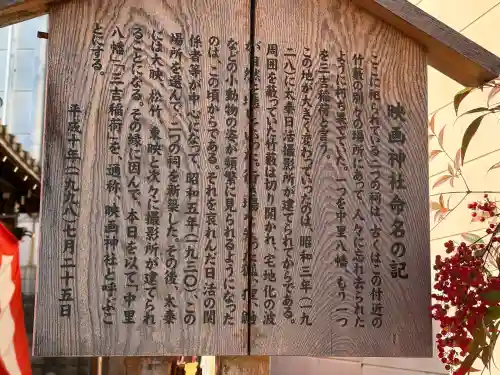 映画神社命名の記
ここに祀られている二つの祠は、古くはこの付近の
竹藪の別々の場所にあって、人々に忘れ去られた
ように朽ち果てていた。一つを中里八幡、もう一つ
を三吉稲荷と言う。
この地が大きく変わっていったのは、昭和三年（一九
二八）に太秦日活撮影所が建てられてからである。
周囲を蔽っていた竹藪は切り開かれ、宅地化の波
が
などの小動物の姿が頻繁に見られるようになった
のは、この頃からである。それを哀れんだ日活の関
係者等が中心になって、昭和五年（一九三〇）、この
場所を選んで、二つの祠を新築した。その後、太秦
には大映、松竹、東映と次々に撮影所が建てられ
ることになる。その縁に因んで、本日を以て「中里
八幡」「三吉稲荷」を、通称、映画神社と呼ぶこ
とにする。
平成十年（一九九八）七月二十五日